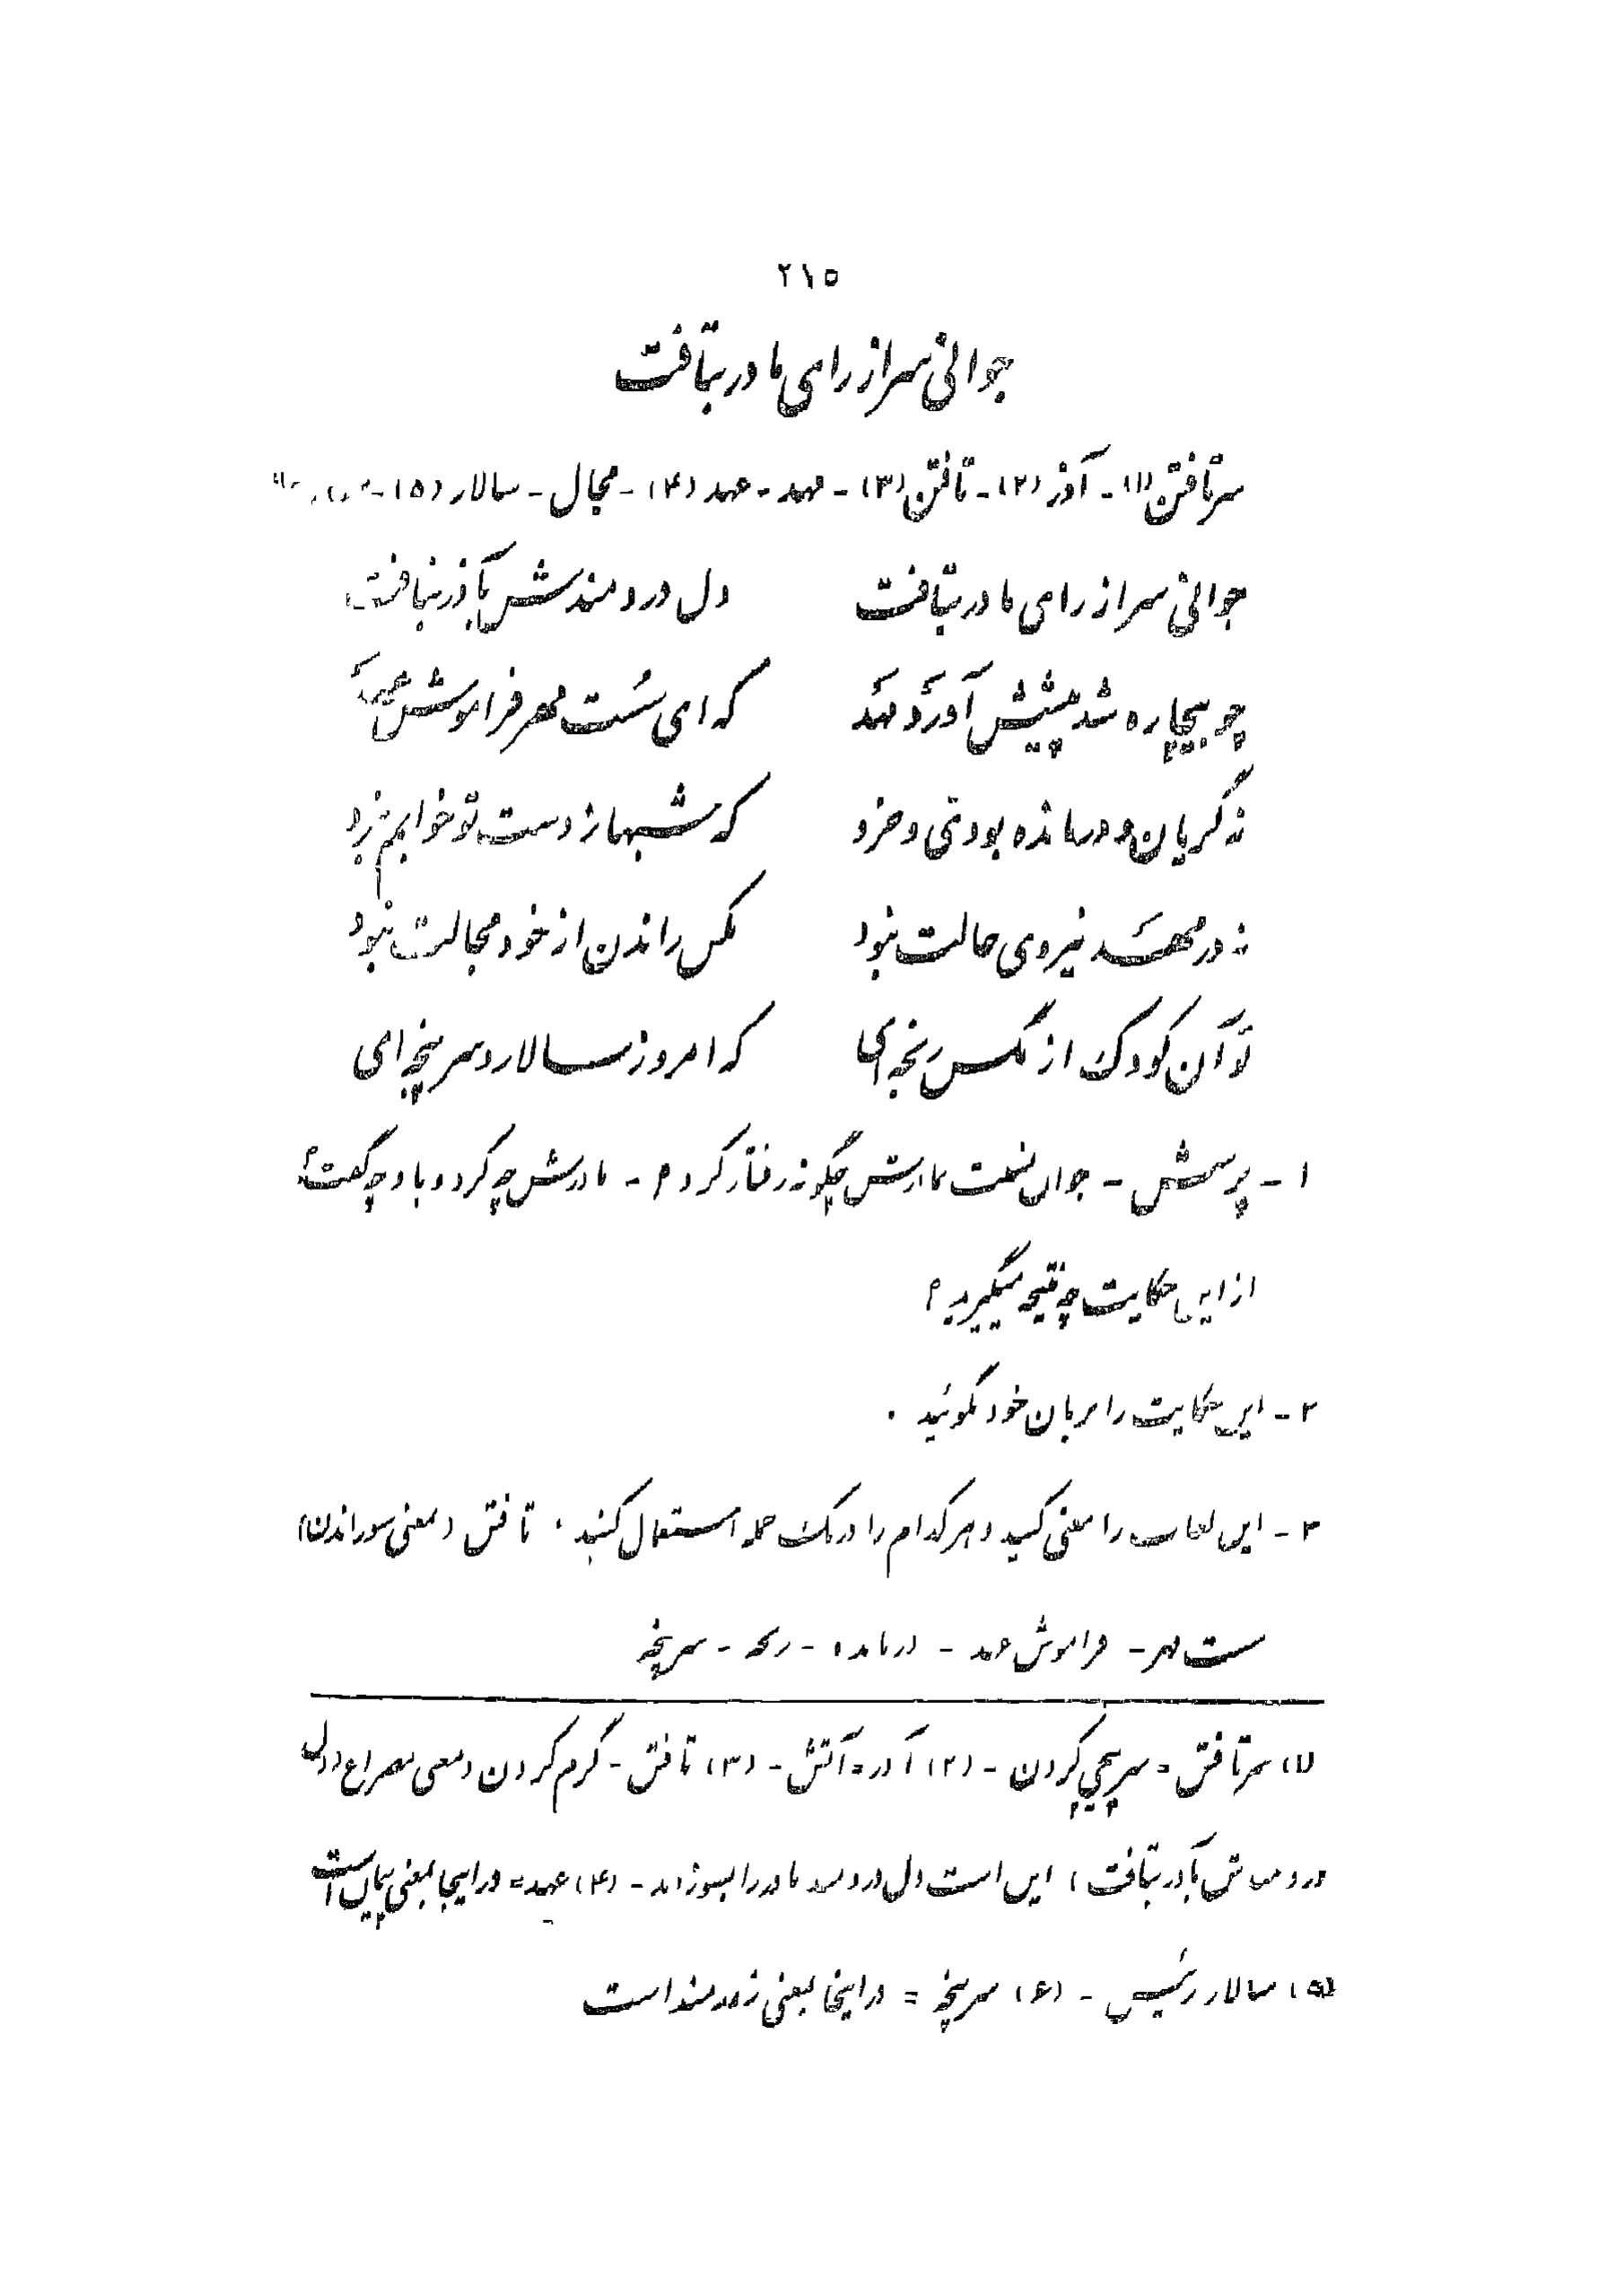 ۲۱۵
جوانی سر از رای مادر بتافت
سرتافتن (۱) - آذر (۲) - تافتن (۳) - مهد - عهد (۴) - مجال - سالار (۵) -
جوانی سر از رای مادر بتافت    دل دردمندش بآذر بتافت
چو بیچاره شد پیشش آورد مهد    که ای سُست مهر فراموش عهد
نه گریان و درمانده بودی و خرد    که شبها ز دست تو خوابم نبرد
نه در مهد نیروی حالت نبود    مگس راندن از خود مجالت نبود
تو آن کودک از مگس رنجه‌ای    که امروز سالار و سرپنجه‌ای
۱ - پرسش - جوان نسبت بمادرش چگونه رفتار کرد ؟ - مادرش چه کرد و باو چه گفت ؟
از این حکایت چه نتیجه میگیرید ؟
۲ - این حکایت را بزبان خود بگوئید .
۳ - این لغات را معنی کنید و هر کدام را در یک جمله استعمال کنید . تافتن (بمعنی سوزاندن)
سست مهر - فراموش عهد - درمانده - رنجه - سرپنجه
(۱) سرتافتن = سرپیچی کردن - (۲) آذر = آتش - (۳) تافتن - گرم کردن و معنی مصراع (دل
دردمندش بآذر بتافت) این است دل دردمند مادر را بسوزاند - (۴) عهد = در اینجا بمعنی پیمان است
(۵) سالار رئیس - (۶) سرپنجه = در اینجا بمعنی زورمند است